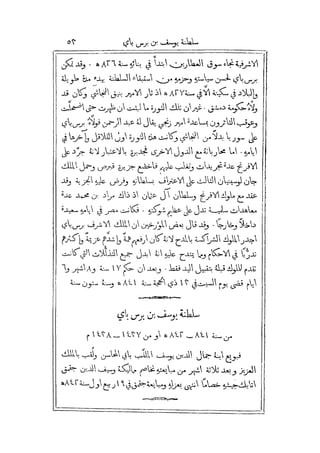 سلطنة يوسف بن برس باي ٥٣
الاشرفية تجاه سوق العطارين ابتدأ في بنائه سنة ٨٢٦ ه . وقد تمكن
برس باي لحسن سياسته وحزمه من استبقاء السلطنة بيده مدة طويلة
والبلاد في سكينة الا في سنة ٨٢٧ ه اذ ثار الامير بنيق البجاشي وكان قد
ولاه حكومة دمشق . غير ان تلك الثورة ما لبثت ان ظهرت حتى اضمحلت
وعوقب الثائرون بمساعدة امير يقال له عبد الرحمن فولاه برس باي
على سوريا بدلاً من البجاشي وكانت هذه الثورة اول القلاقل وآخرها في
ايامه . اما محارباته مع الدول الاخرى فجديرة بالاعتبار لانه جرّد على
الافرنج عدة تجريدات وتغلب عليهم فاخضع جزيرة قبرص وحمل الملك
جان لوسينيان الثالث على الاعتراف بسلطانه وفرض عليه الجزية وقد
عقد مع ملوك الافرنج وسلطان آل عثمان اذ ذاك مراد بن محمد عدة
معاهدات سلمية تدل على عظم شوكته . فكانت مصر في ايامه سعيدة
داخلاً وخارجاً . وقد قال بعض المؤرخين ان الملك الاشرف برس باي
اجدر الملوك الشراكسة بالمدح لانه كان ارفعهم همة واشدهم عزيمة واكثرهم
تدرباً في الاحكام ومما يمتدح عليه انه ابدل جميع التذللات التي كانت
تقدم للملوك قبله بتقبيل اليد فقط . وبعد ان حكم ١٧ سنة و٨ اشهر و٦
ايام قضى يوم السبت في ١٢ ذي الحجة سنة ٨٤١ ه وسنه ستون سنة
سلطنة يوسف بن برس باي
من سنة ٨٤١ — ٨٤٢ ه او من ١٤٣٧ — ١٤٣٨ م
فبويع ابنه جمال الدين يوسف الملقب بابي المحاسن ولقب بالملك
العزيز وبعد ثلاثة اشهر من مبايعته تخاصم مماليكه وسيف الدين جقمق
اتابك جيشه خصاماً انتهى بعزله ومبايعة جقمق في ١٩ ربيع اول سنة ٨٤٢ ه